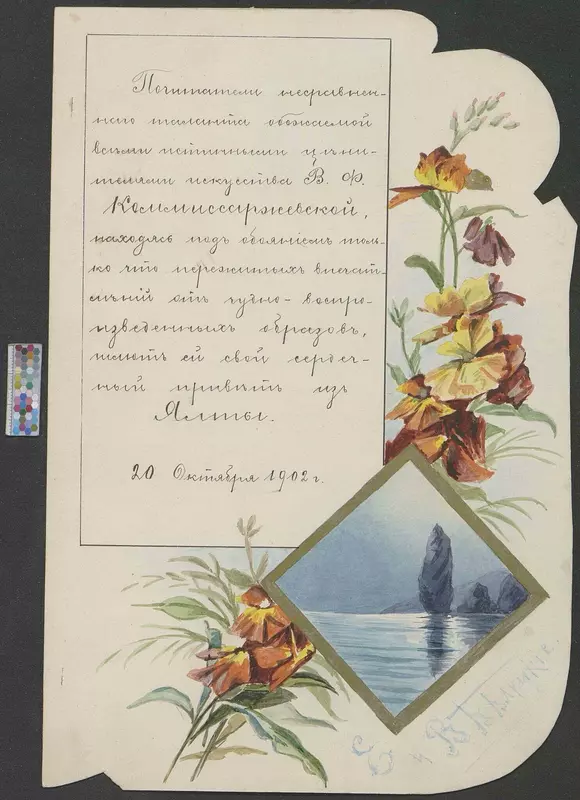 Почитатели несравнен-
наго таланта обожаемой
всѣми истинными цѣни-
телями искусства В. Ф.
Коммиссаржевской,
находясь подъ обаяніемъ толь-
ко что пережитыхъ впечат-
лѣній отъ чудно-воспро-
изведенныхъ образовъ,
шлютъ ей свой сердеч-
ный привѣтъ изъ
Ялты.
20 Октября 1902 г.